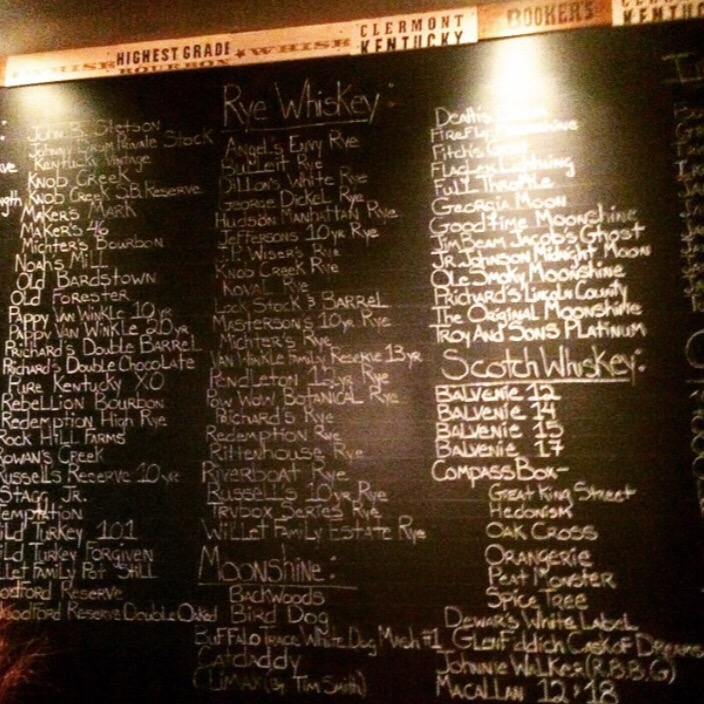 HIGHEST GRADE
BOURBON
WHISK
CLERMONT
KENTUCKY
BOOKER'S
John B. Stetson
Johnny Drum Private Stock
Kentucky Vintage
Knob Creek
Knob Creek S.B. Reserve
Maker's Mark
Maker's 46
Michter's Bourbon
Noah's Mill
Old Bardstown
Old Forester
Pappy Van Winkle 10yr
Pappy Van Winkle 20yr
Prichard's Double Barrel
Prichard's Double Chocolate
Pure Kentucky XO
Rebellion Bourbon
Redemption High Rye
Rock Hill Farms
Rowan's Creek
Russell's Reserve 10yr
Stagg Jr.
Temptation
ild Turkey 101
ild Turkey Forgiven
llet Family Pot Still
oodford Reserve
oodford Reserve Double Oaked
Rye Whiskey:
Angel's Envy Rye
Bulleit Rye
Dillon's White Rye
George Dickel Rye
Hudson Manhattan Rye
Jefferson's 10yr Rye
J.P. Wiser's Rye
Knob Creek Rye
Koval Rye
Lock Stock & Barrel
Masterson's 10yr Rye
Michter's Rye
Van Winkle Family Reserve 13yr
Pendleton Rye
Pow Wow Botanical Rye
Prichard's Rye
Redemption Rye
Rittenhouse Rye
Riverboat Rye
Russell's 10yr Rye
Trybox Series Rye
Willet Family Estate Rye
Moonshine:
Backwoods
Bird Dog
Buffalo Trace White Dog Mash #1
Catdaddy
Climax (By Tim Smith)
Death's
Firefly Moonshine
Fitch's
Flaglex Lightning
Full Throttle
Georgia Moon
Goodtime Moonshine
Jim Beam Jacob's Ghost
Jr. Johnson Midnight Moon
Ole Smoky Moonshine
Prichard's Lincoln County
The Original Moonshine
Troy And Sons Platinum
Scotch Whiskey:
Balvenie 12
Balvenie 14
Balvenie 15
Balvenie 17
Compass Box-
Great King Street
Hedonism
Oak Cross
Orangerie
Peat Monster
Spice Tree
Dewar's White Label
Glenfiddich Cask of Dreams
Johnnie Walker (R.B.B.G)
Macallan 12 & 18